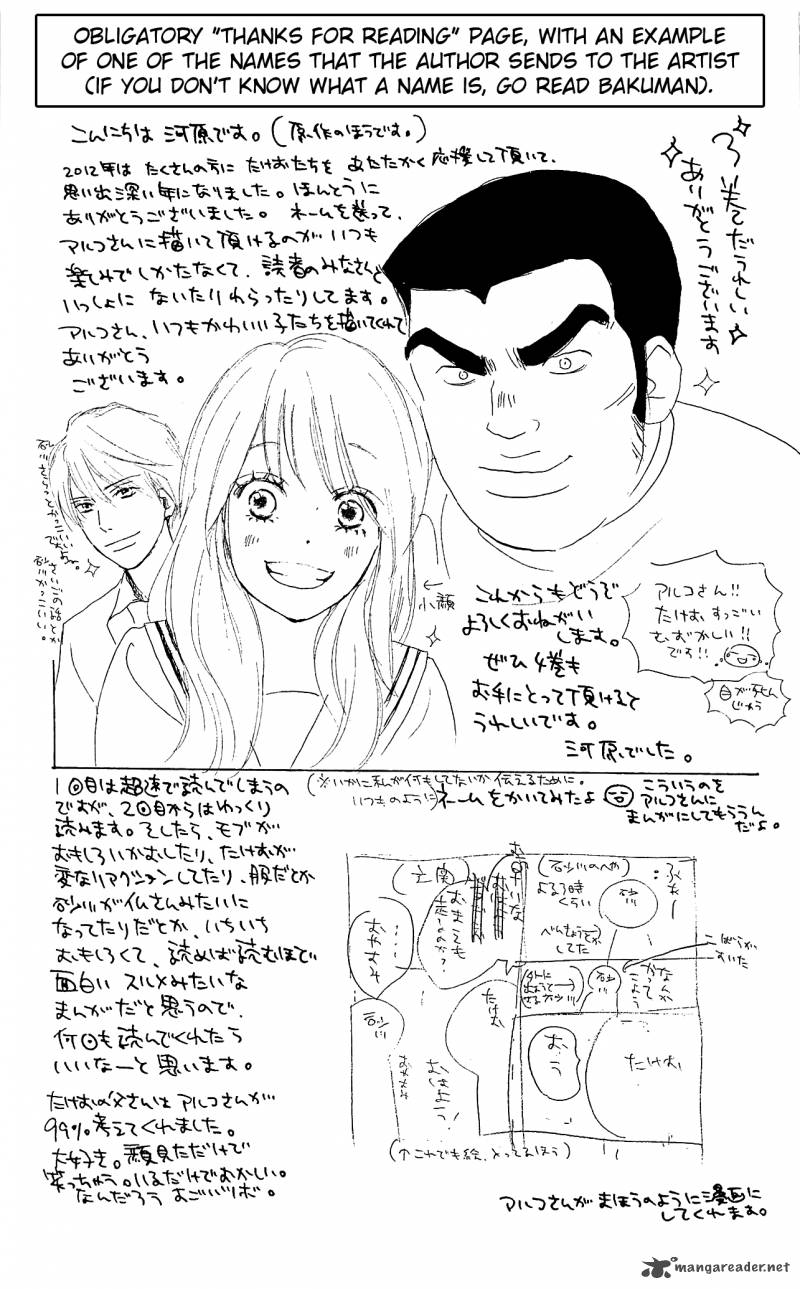 OBLIGATORY "THANKS FOR READING" PAGE, WITH AN EXAMPLE
OF ONE OF THE NAMES THAT THE AUTHOR SENDS TO THE ARTIST
(IF YOU DON'T KNOW WHAT A NAME IS, GO READ BAKUMAN).
こんにちは 河原です。(原作のほうです。)
2012年は たくさんの方に たけおたちを あたたかく 応援して頂いて、
思い出深い年になりました。ほんとうに
ありがとうございました。 ネームを送って、
アルコさんに描いて頂けるのが いつも
楽しみでしかたなくて、読者のみなさんと
いっしょに ないたりわらったりしてます。
アルコさん、いつもかわいい子たちを描いてくれて
ありがとう
ございます。
3巻てだうれしい
ありがとうございます
←小顔
これからもどうぞ
よろしくおねがい
します。
ぜひ 4巻も
お手にとって頂けると
うれしいです。
河原でした。
アルコさん!!
たけお、すっごい
むずかしい!!
です!!
1回目は超速で読んでしまうの
ですが、2回目からはゆっくり
読みます。そしたら、モブが
おもしろいかおしたり、たけおが
変なリアクションしてたり、服だとか
砂川が仏さんみたいに
なってたりだとか、いちいち
おもしろくて、読めば読むほど
面白い スルメみたいな
まんがだと思うので、
何回も読んでくれたら
いいなーと思います。
たけおの父さんは アルコさんが
99%考えてくれました。
大好き。顔見ただけで
笑っちゃう。いるだけでおかしい。
なんだろう
(※いかに私が何もしてないか伝えるために、
いつものように)ネームをかいてみたよ
こういうのを
アルコさんに
まんがにしてもらうん
だよ。
(砂川のへや)
よる9時
くらい
べんきょうとか
してた
砂川
なんか
かって
こよう
たけお
おう
(玄関)
おやすみ
砂川
たけお
おはよう!
(↑これでも絵、とってるほう)
アルコさんが まほうのように漫画に
してくれます。
mangareader.net